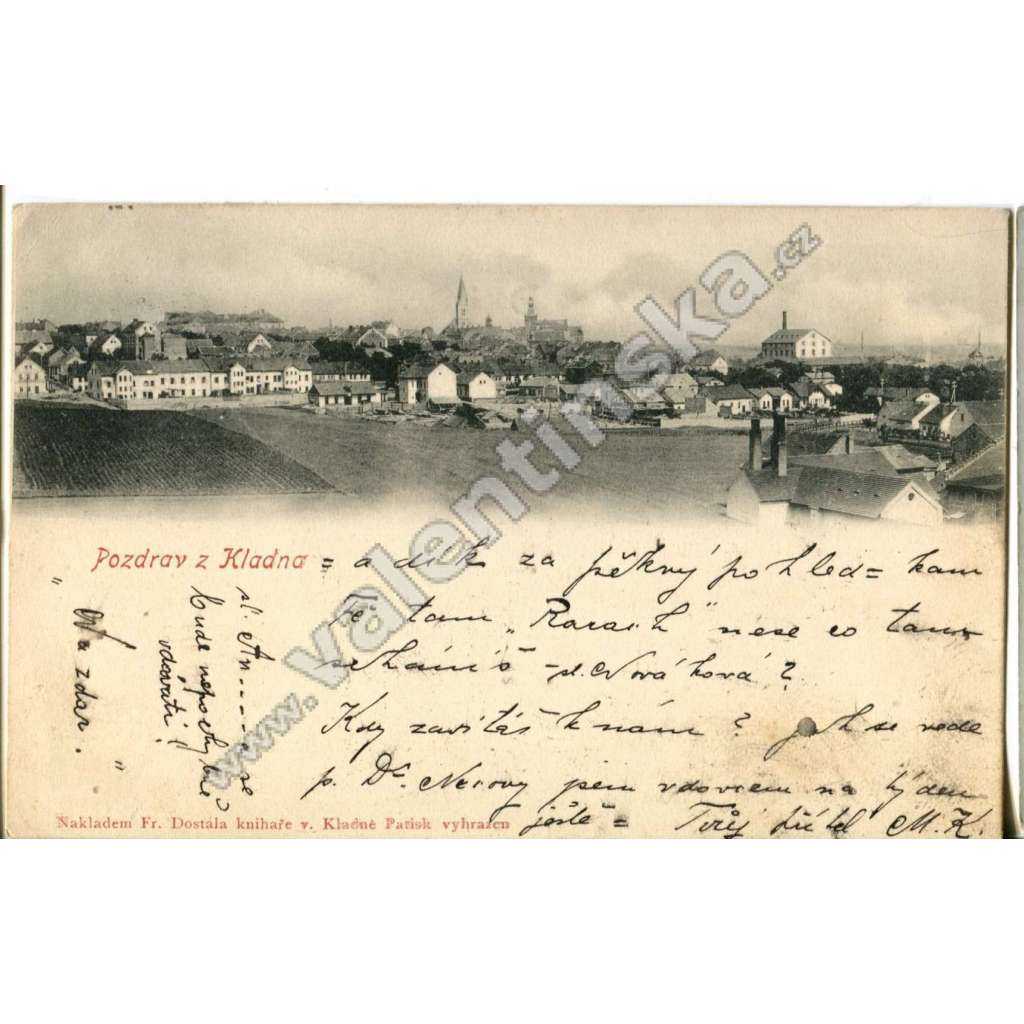 Pozdrav z Kladna
= a dík za pěkný pohled = kam
tam „Rarach" nese co tam
scháníš - sl. Nováková?
Kdy zavítáš k nám? Jak se vede
p. Dr. jsem vdovcem na týden
ještě = Tvůj přítel M.K.
sl. An...... se
bude nepochybně
vdávati!
„Na zdar."
Nakladem Fr. Dostála knihaře v. Kladně Patisk vyhrazen
www.valentinska.cz